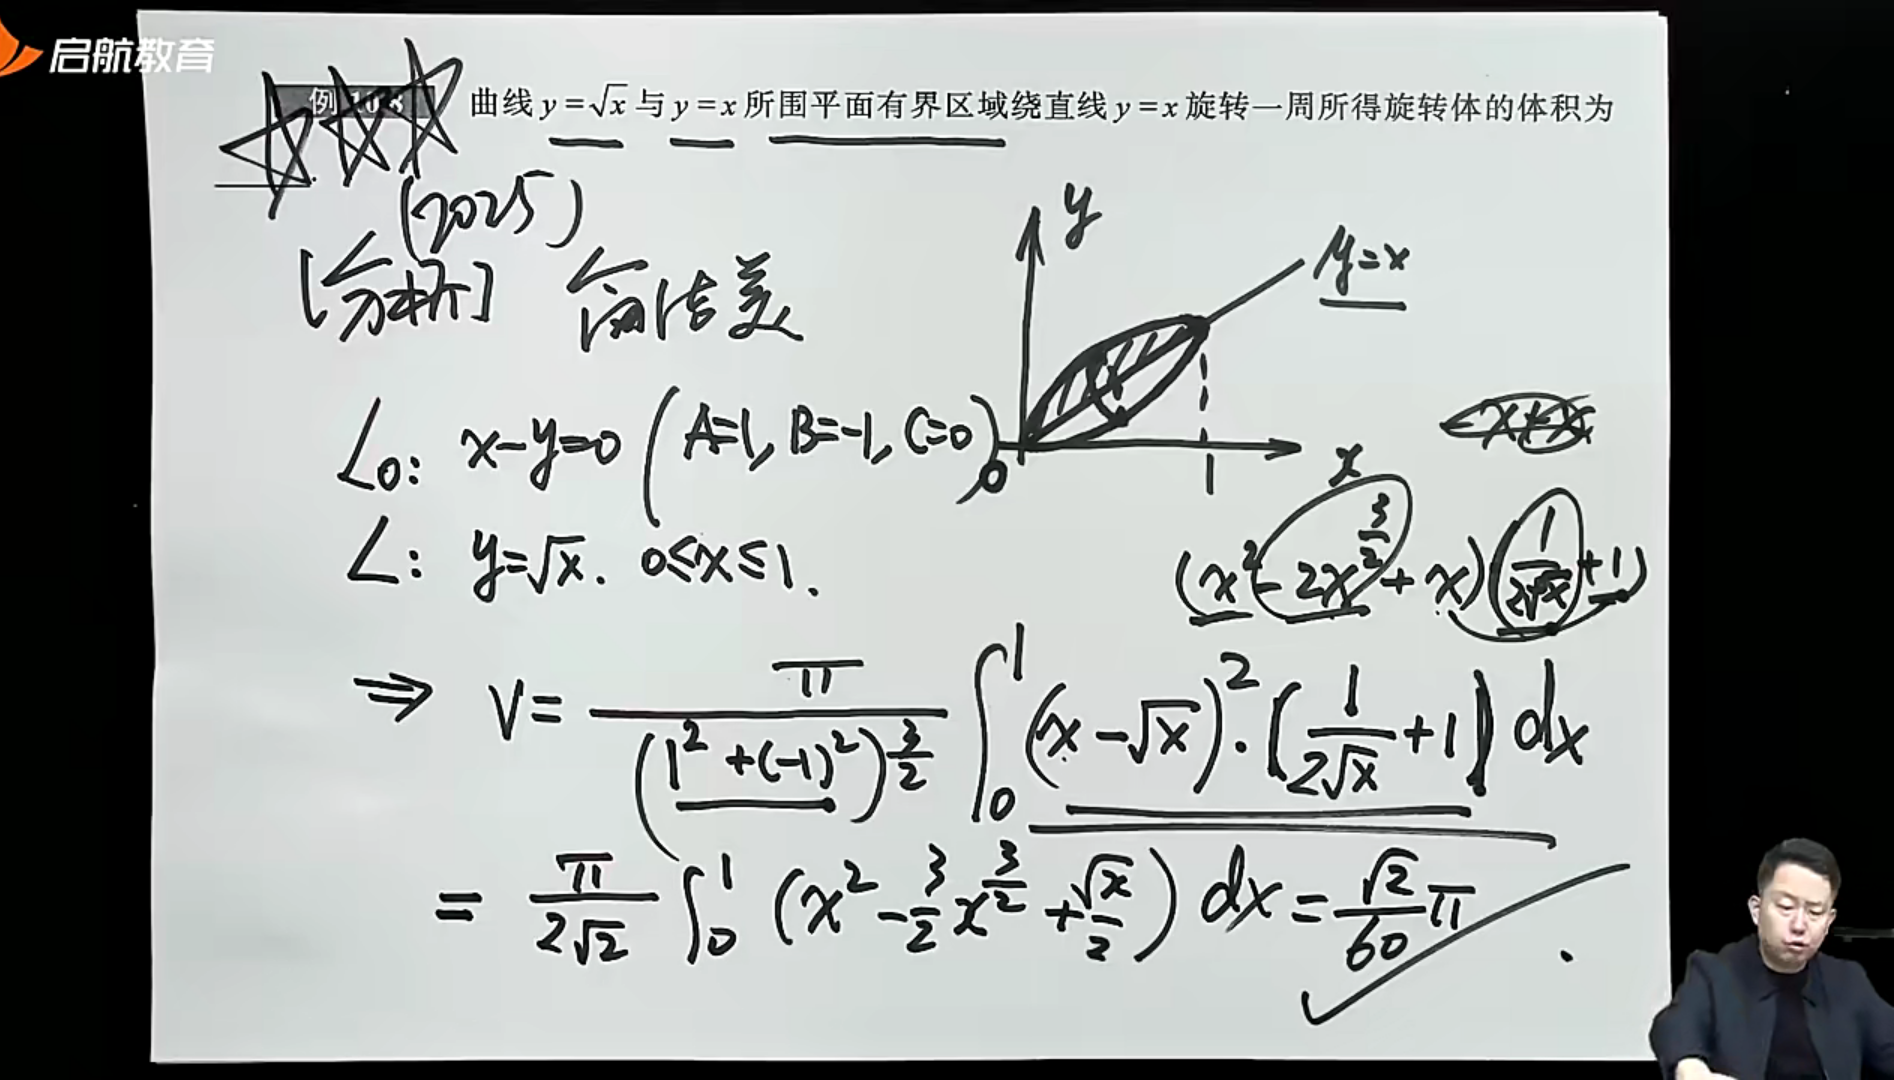 启航教育
例10.8 曲线 y=√x 与 y=x 所围平面有界区域绕直线 y=x 旋转一周所得旋转体的体积为
______.
(2025)
[分析] 简洁美
y
y=x
0
1
x
L₀: x-y=0 (A=1, B=-1, C=0)
L: y=√x. 0≤x≤1.
(x²-2x^(3/2)+x)(1/(2√x)+1)
⇒ V= π/(1²+(-1)²)^(3/2) ∫₀¹ (x-√x)²·|1/(2√x)+1| dx
= π/(2√2) ∫₀¹ (x²-3/2 x^(3/2)+√x/2) dx = √2/60 π.